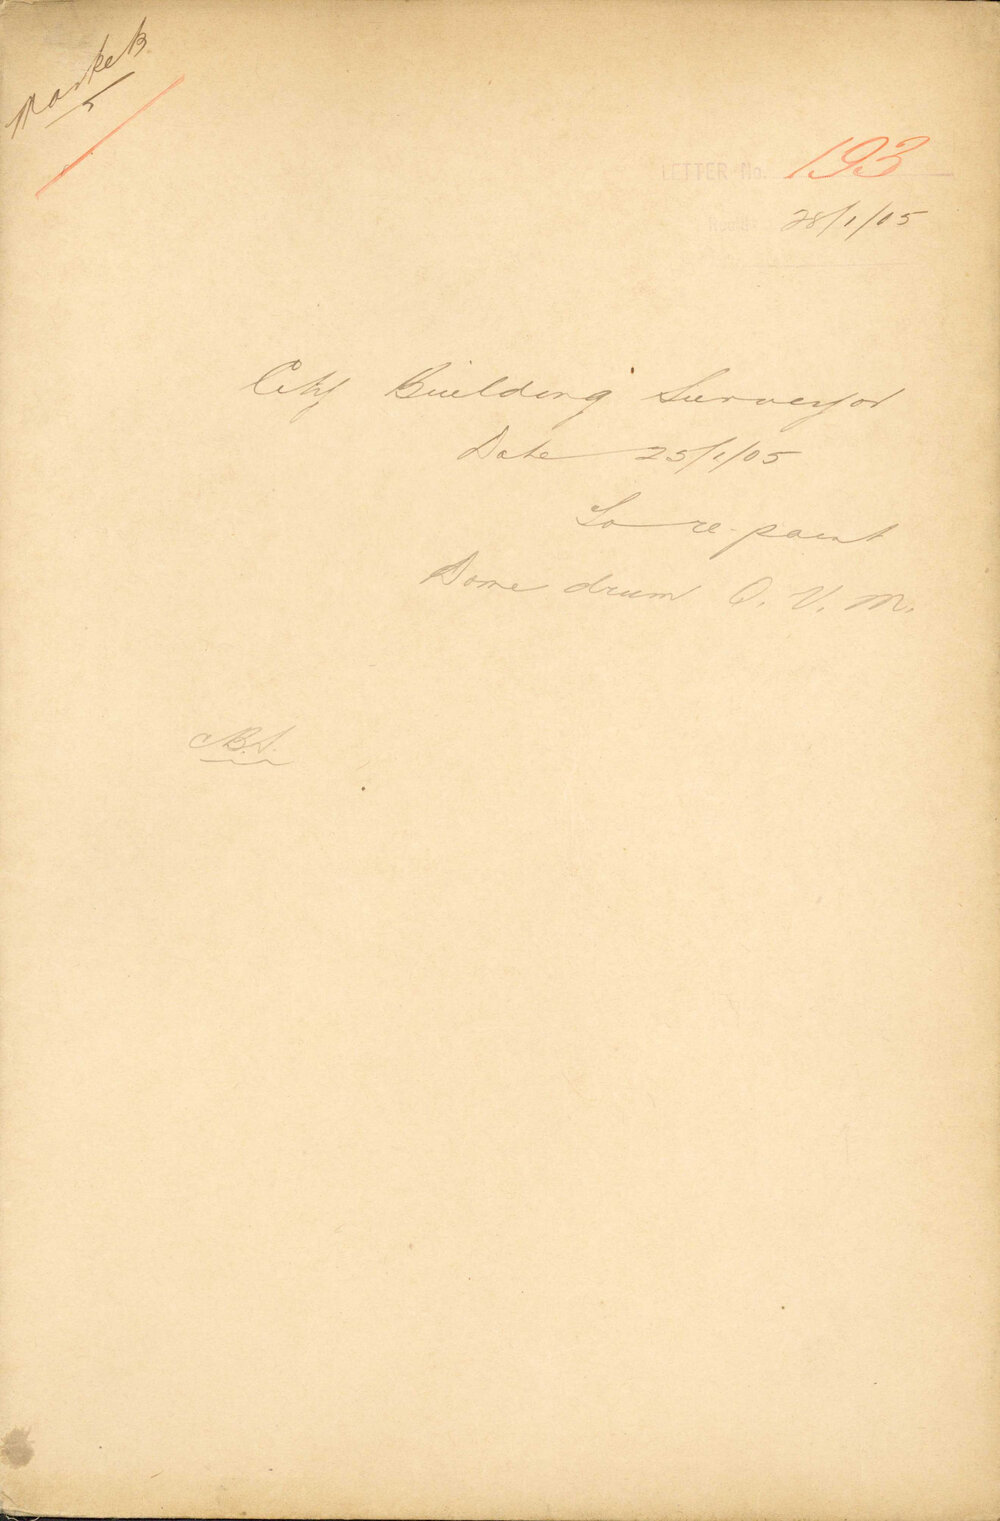 Markets
5
LETTER No. 193
28/1/05
City Building Surveyor
Date 25/1/05
To re-paint
Dome drum Q. V. M.
C.B.S.